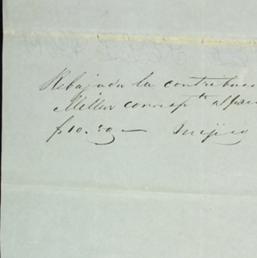 Rebajada la contribuci
Miller corresp.te al par
$10.29